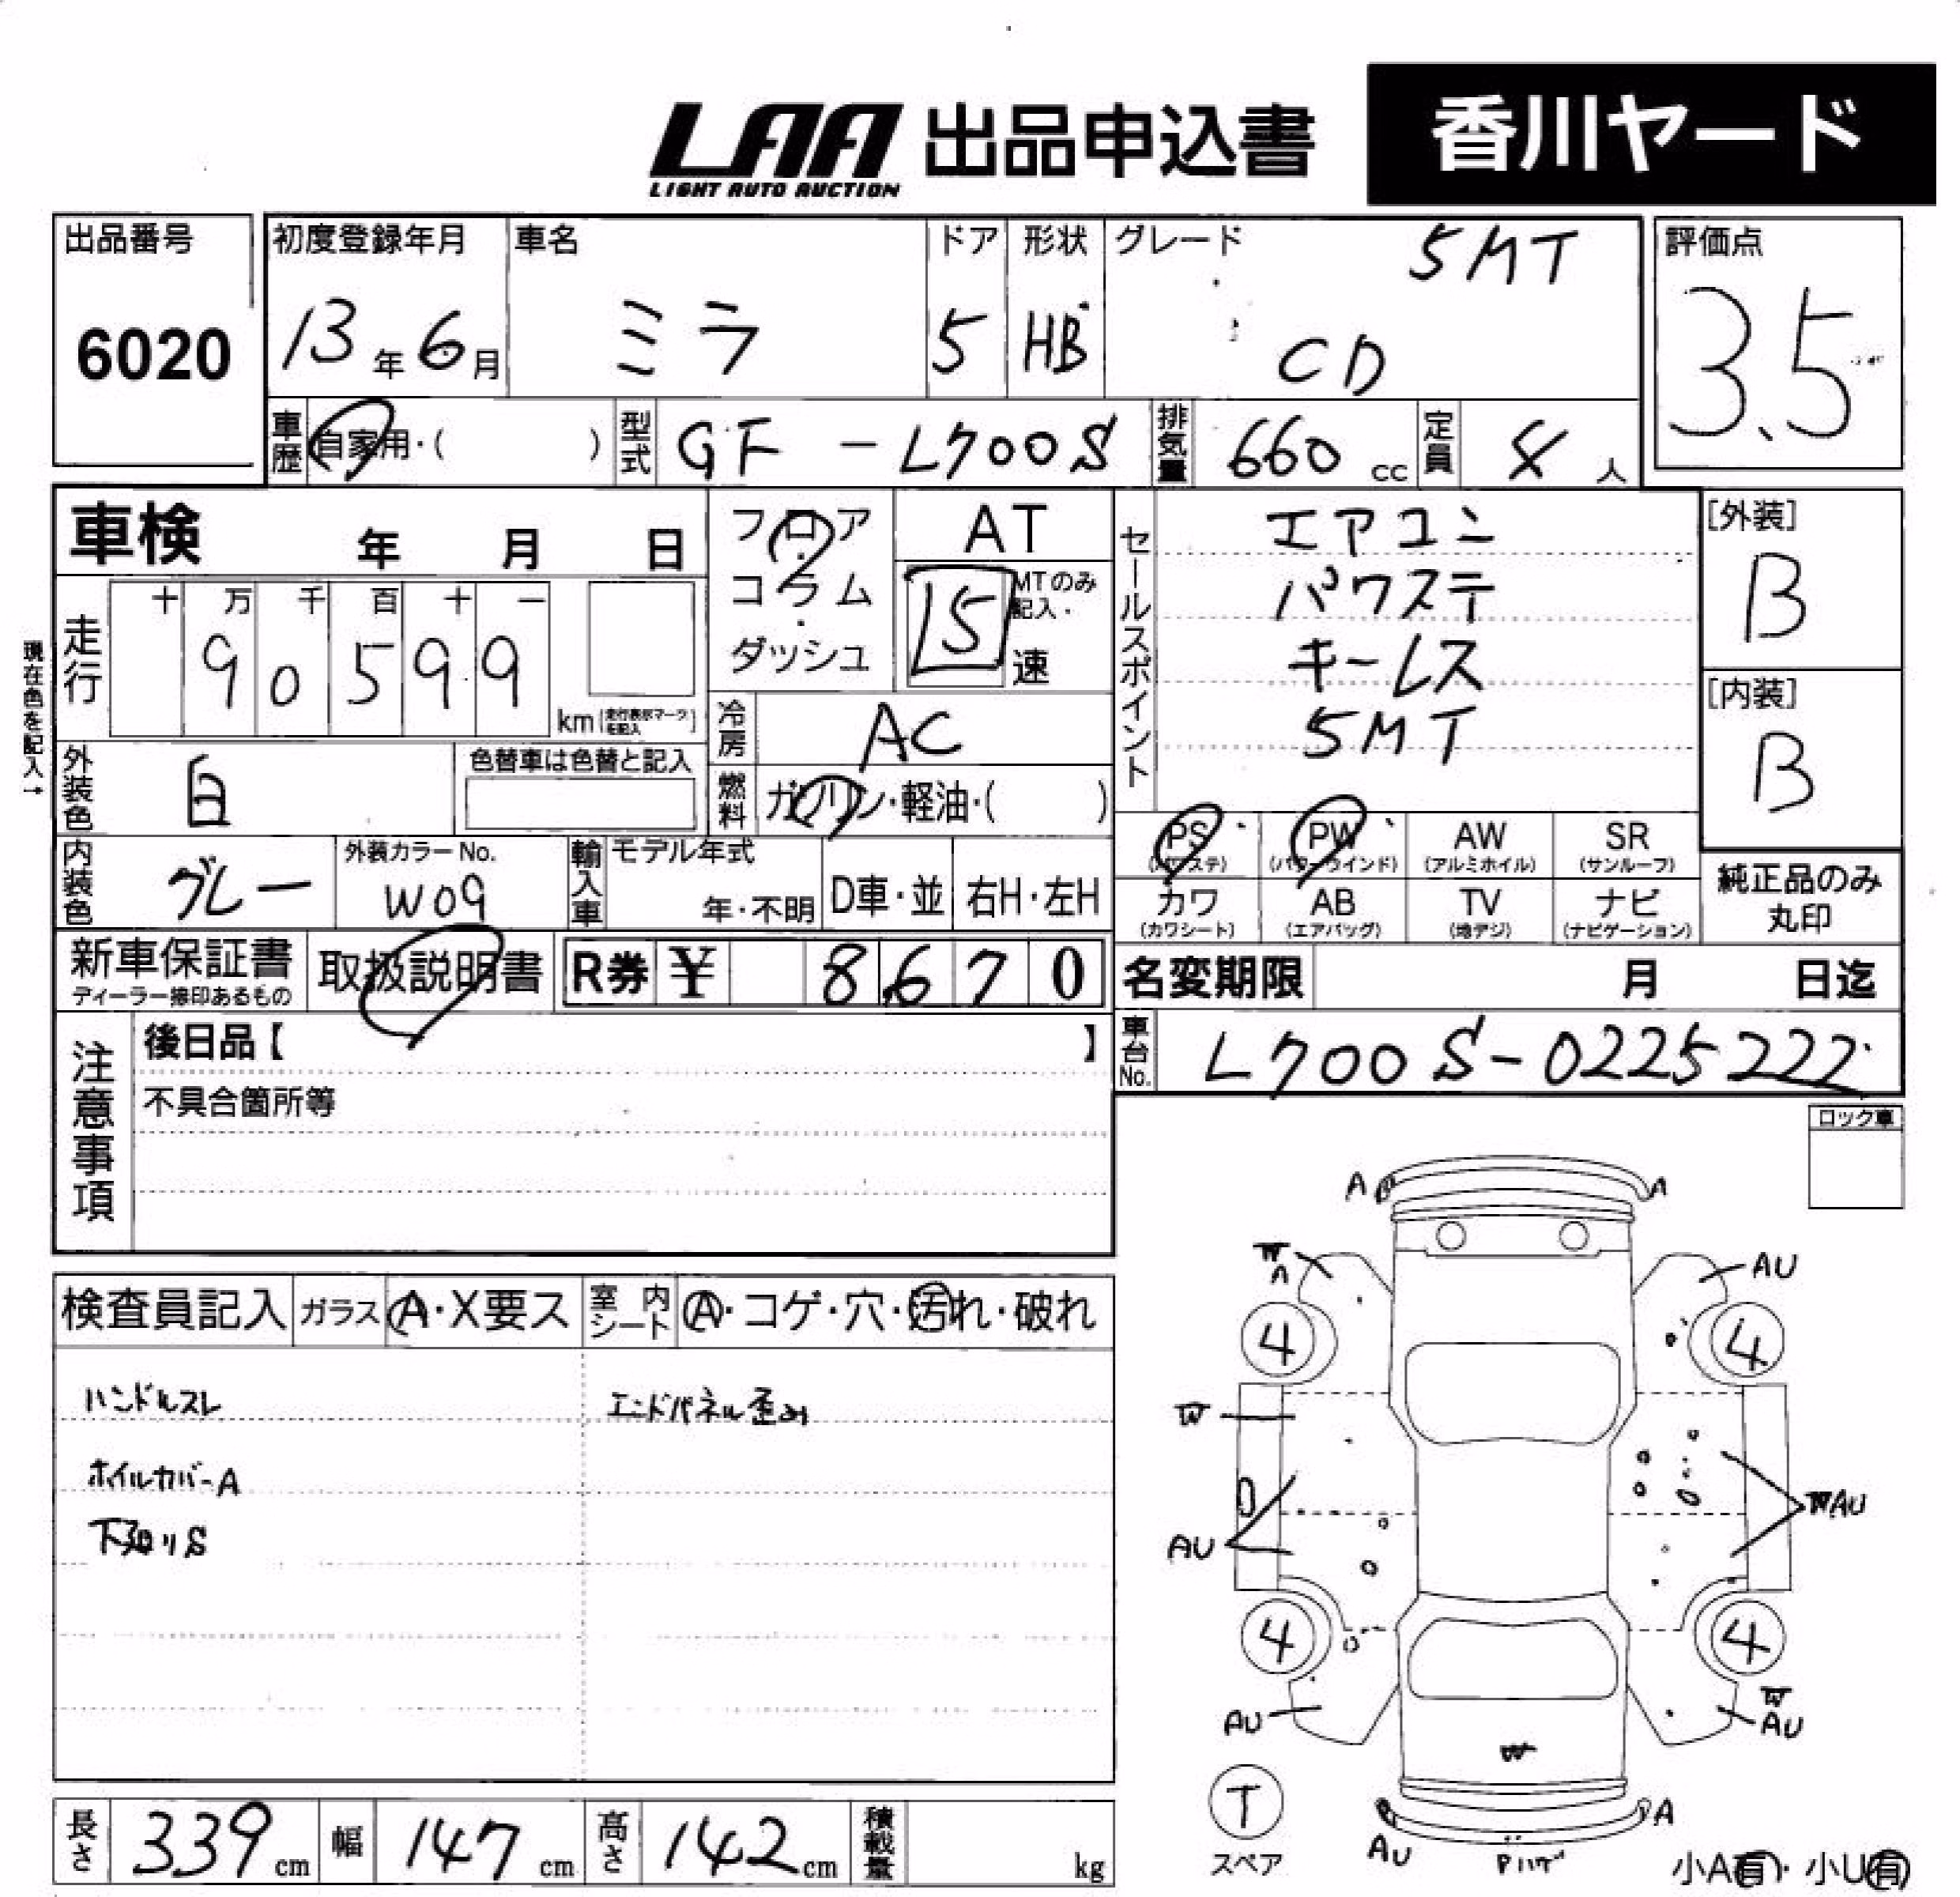 LAA 出品申込書 香川ヤード
LIGHT AUTO AUCTION
出品番号 初度登録年月 車名 ドア 形状 グレード 5MT 評価点
6020 13年6月 ミラ 5 HB CD 3.5
車歴 自家用・( ) 型式 GF-L700S 排気量 660 cc 定員 4 人
車検 年 月 日 フロア AT セールスポイント エアコン [外装]
十 万 千 百 十 一 コラム 5 MTのみ記入 パワステ B
走行 90599 km ダッシュ 速 キーレス [内装]
現在色を記入→ 冷房 AC 5MT B
外装色 白 色替車は色替と記入 燃料 ガソリン・軽油・( )
PS AW SR
(パワステ) (パワーウインド) (アルミホイル) (サンルーフ)
PW
内装色 グレー 外装カラーNo. W09 輸入車 モデル年式 年・不明 D車・並 右H・左H
カワ AB TV ナビ 純正品のみ
(カワシート) (エアバッグ) (地デジ) (ナビゲーション) 丸印
新車保証書 取扱説明書 R券 ¥ 8670 名変期限 月 日迄
ディーラー捺印あるもの
注意事項 後日品【 】 車台No. L700S-0225222
不具合箇所等
ロック車
検査員記入 ガラス A・X要ス 室内シート A・コゲ・穴・汚れ・破れ
ハンドルスレ エンドパネル歪み
ホイルカバーA
下廻りS
A A
W A AU
4 4
W
AU WAU
4 4
AU W AU
W
T A
スペア AU
小A有・小U有
長さ 339 cm 幅 147 cm 高さ 142 cm 積載量 kg